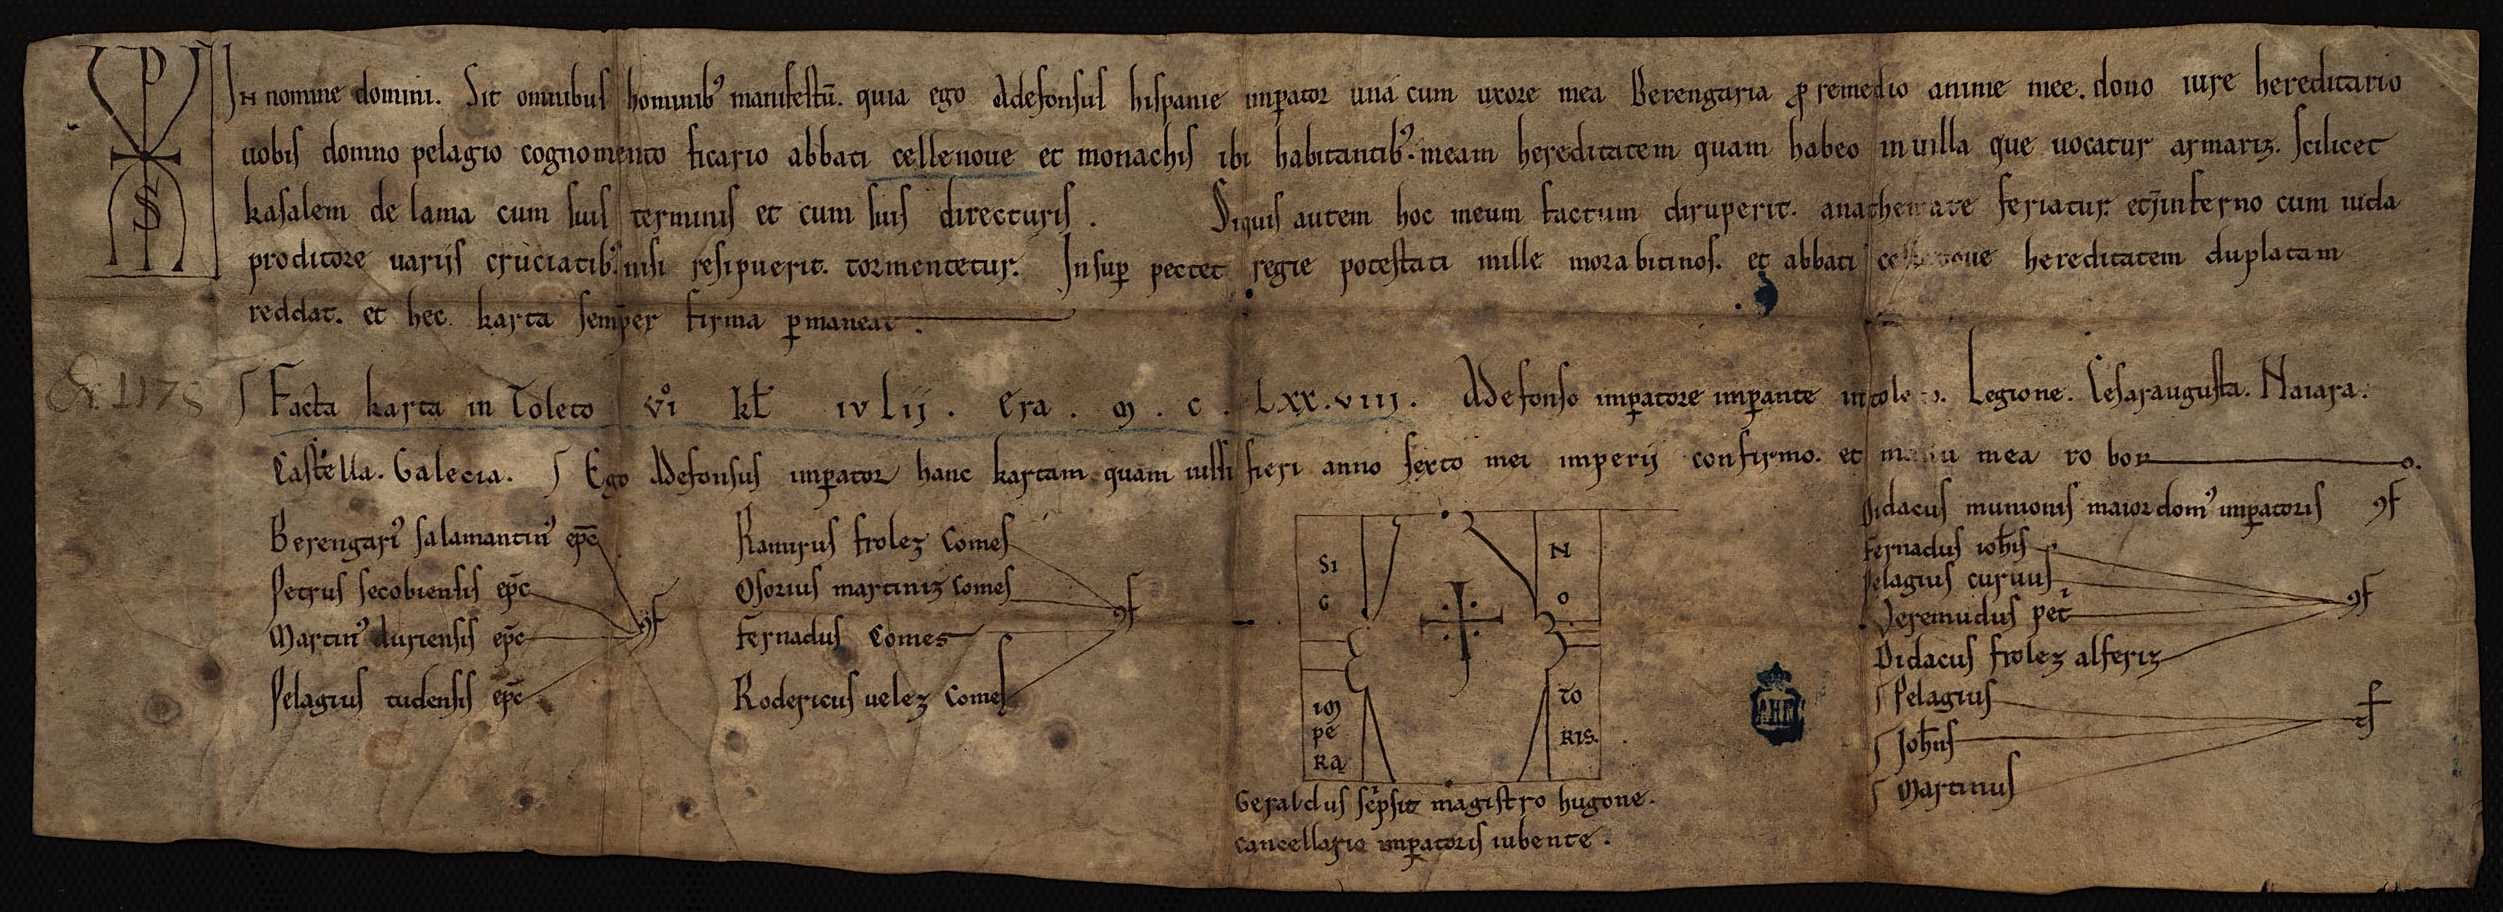 In nomine domini. Sit omnibus hominib' manifestū. quia ego Adefonsus hispanie imꝑator una cum uxore mea Berengaria ꝓ remedio anime mee. dono iure hereditario
uobis domno pelagio cognomento ficario abbati cellenoue et monachis ibi habitantib'. meam hereditatem quam habeo in uilla que uocatur armariz. scilicet
kasalem de lama cum suis terminis et cum suis directuris. Siquis autem hoc meum factum diruperit. anathemate feriatur. et in inferno cum iuda
proditore uariis cruciatib'. nisi resipuerit. tormentetur. Insuꝑ pectet regie potestati mille morabitinos. et abbati cellenoue hereditatem duplatam
reddat. et hec karta semper firma ꝑmaneat.
Er. 1178
Facta karta in Toleto vi° kł iulij. Era. M. C. LXX.VIII. Adefonso imꝑatore imꝑante in toleto. Legione. Cesaraugusta. Naiara.
Castella. Galecia. Ego Adefonsus imꝑator hanc kartam quam iussi fieri anno sexto mei imperij confirmo. et manu mea robor
Berengari' salamantin' epc̄
Petrus secobiensis epc̄
Martin' auriensis epc̄
Pelagius tudensis epc̄
ꝯf
Ramirus frolez Comes
Osorius martiniz Comes
Fernadus Comes
Rodericus uelez Comes
ꝯf
SIG
NO
IMPERA
TORIS.
Geraldus scͥpsit magistro hugone.
cancellario imꝑatoris iubente.
Didacus munionis maiordom' imꝑatoris ꝯf
Fernadus ioh̄is
Pelagius curuus
Veremudus pet͛
Didacus frolez alferiz
ꝯf
Pelagius
Joh̄ns
Martinus
ts
AHN